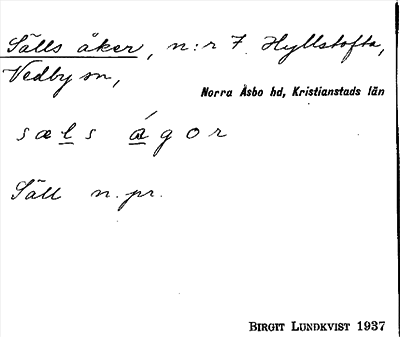 Sälls åker, n:r 7. Hyllstofta,
Vedby sn,
Norra Åsbo hd, Kristianstads län
sæls ágor
Säll n.pr.
BIRGIT LUNDKVIST 1937